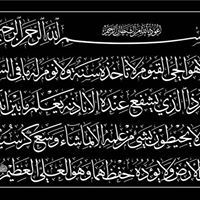 اعوذ بالله من الشيطان الرجيم
بسم الله الرحمن الرحيم
هو الحي القيوم لا تأخذه سنة ولا نوم له ما في
ذا الذي يشفع عنده الا باذنه يعلم ما بين
لا يحيطون بشيء من علمه الا بما شاء وسع
الارض ولا يؤده حفظهما وهو العلي العظيم